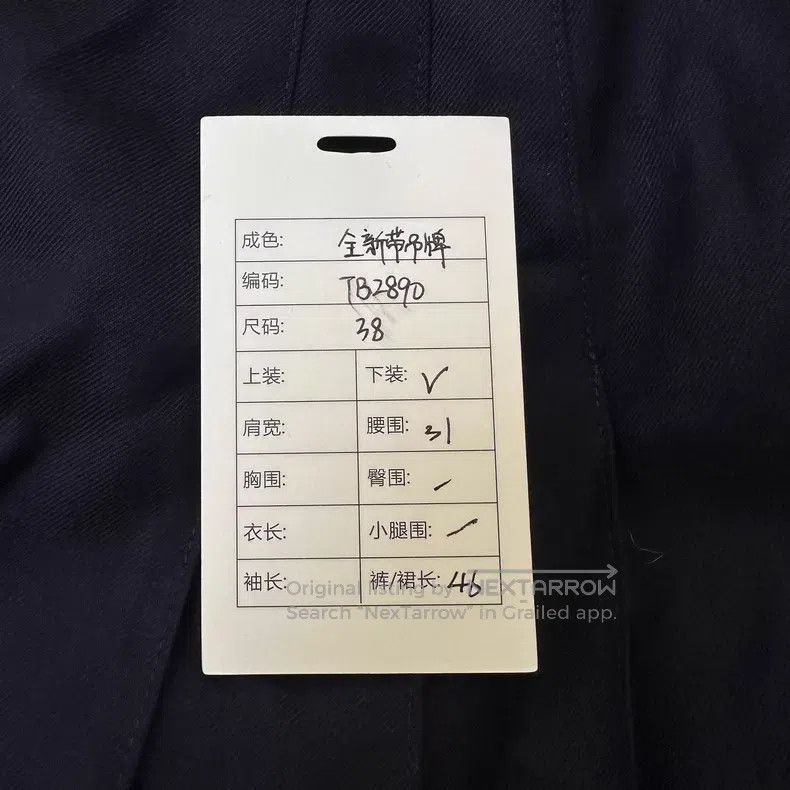 成色: 全新带吊牌
编码: TB2890
尺码: 38
上装: 下装: √
肩宽: 腰围: 31
胸围: 臀围: -
衣长: 小腿围: -
袖长: 裤/裙长: 46
Original listing by NEXTARROW
Search "NexTarrow" in Grailed app.